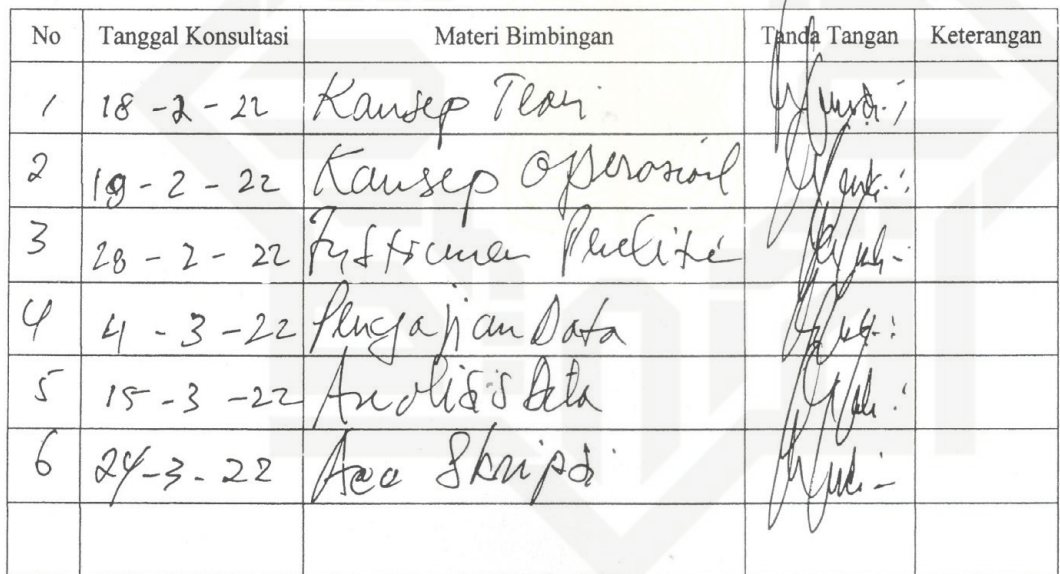 No Tanggal Konsultasi Materi Bimbingan Tanda Tangan Keterangan
1 18 - 2 - 22 Konsep Teori
2 19 - 2 - 22 Konsep Operosional
3 28 - 2 - 22 Instrumen Peneliti
4 4 - 3 - 22 Pengajian Data
5 15 - 3 - 22 Analisis Data
6 24 - 3 - 22 Acc Skripsi